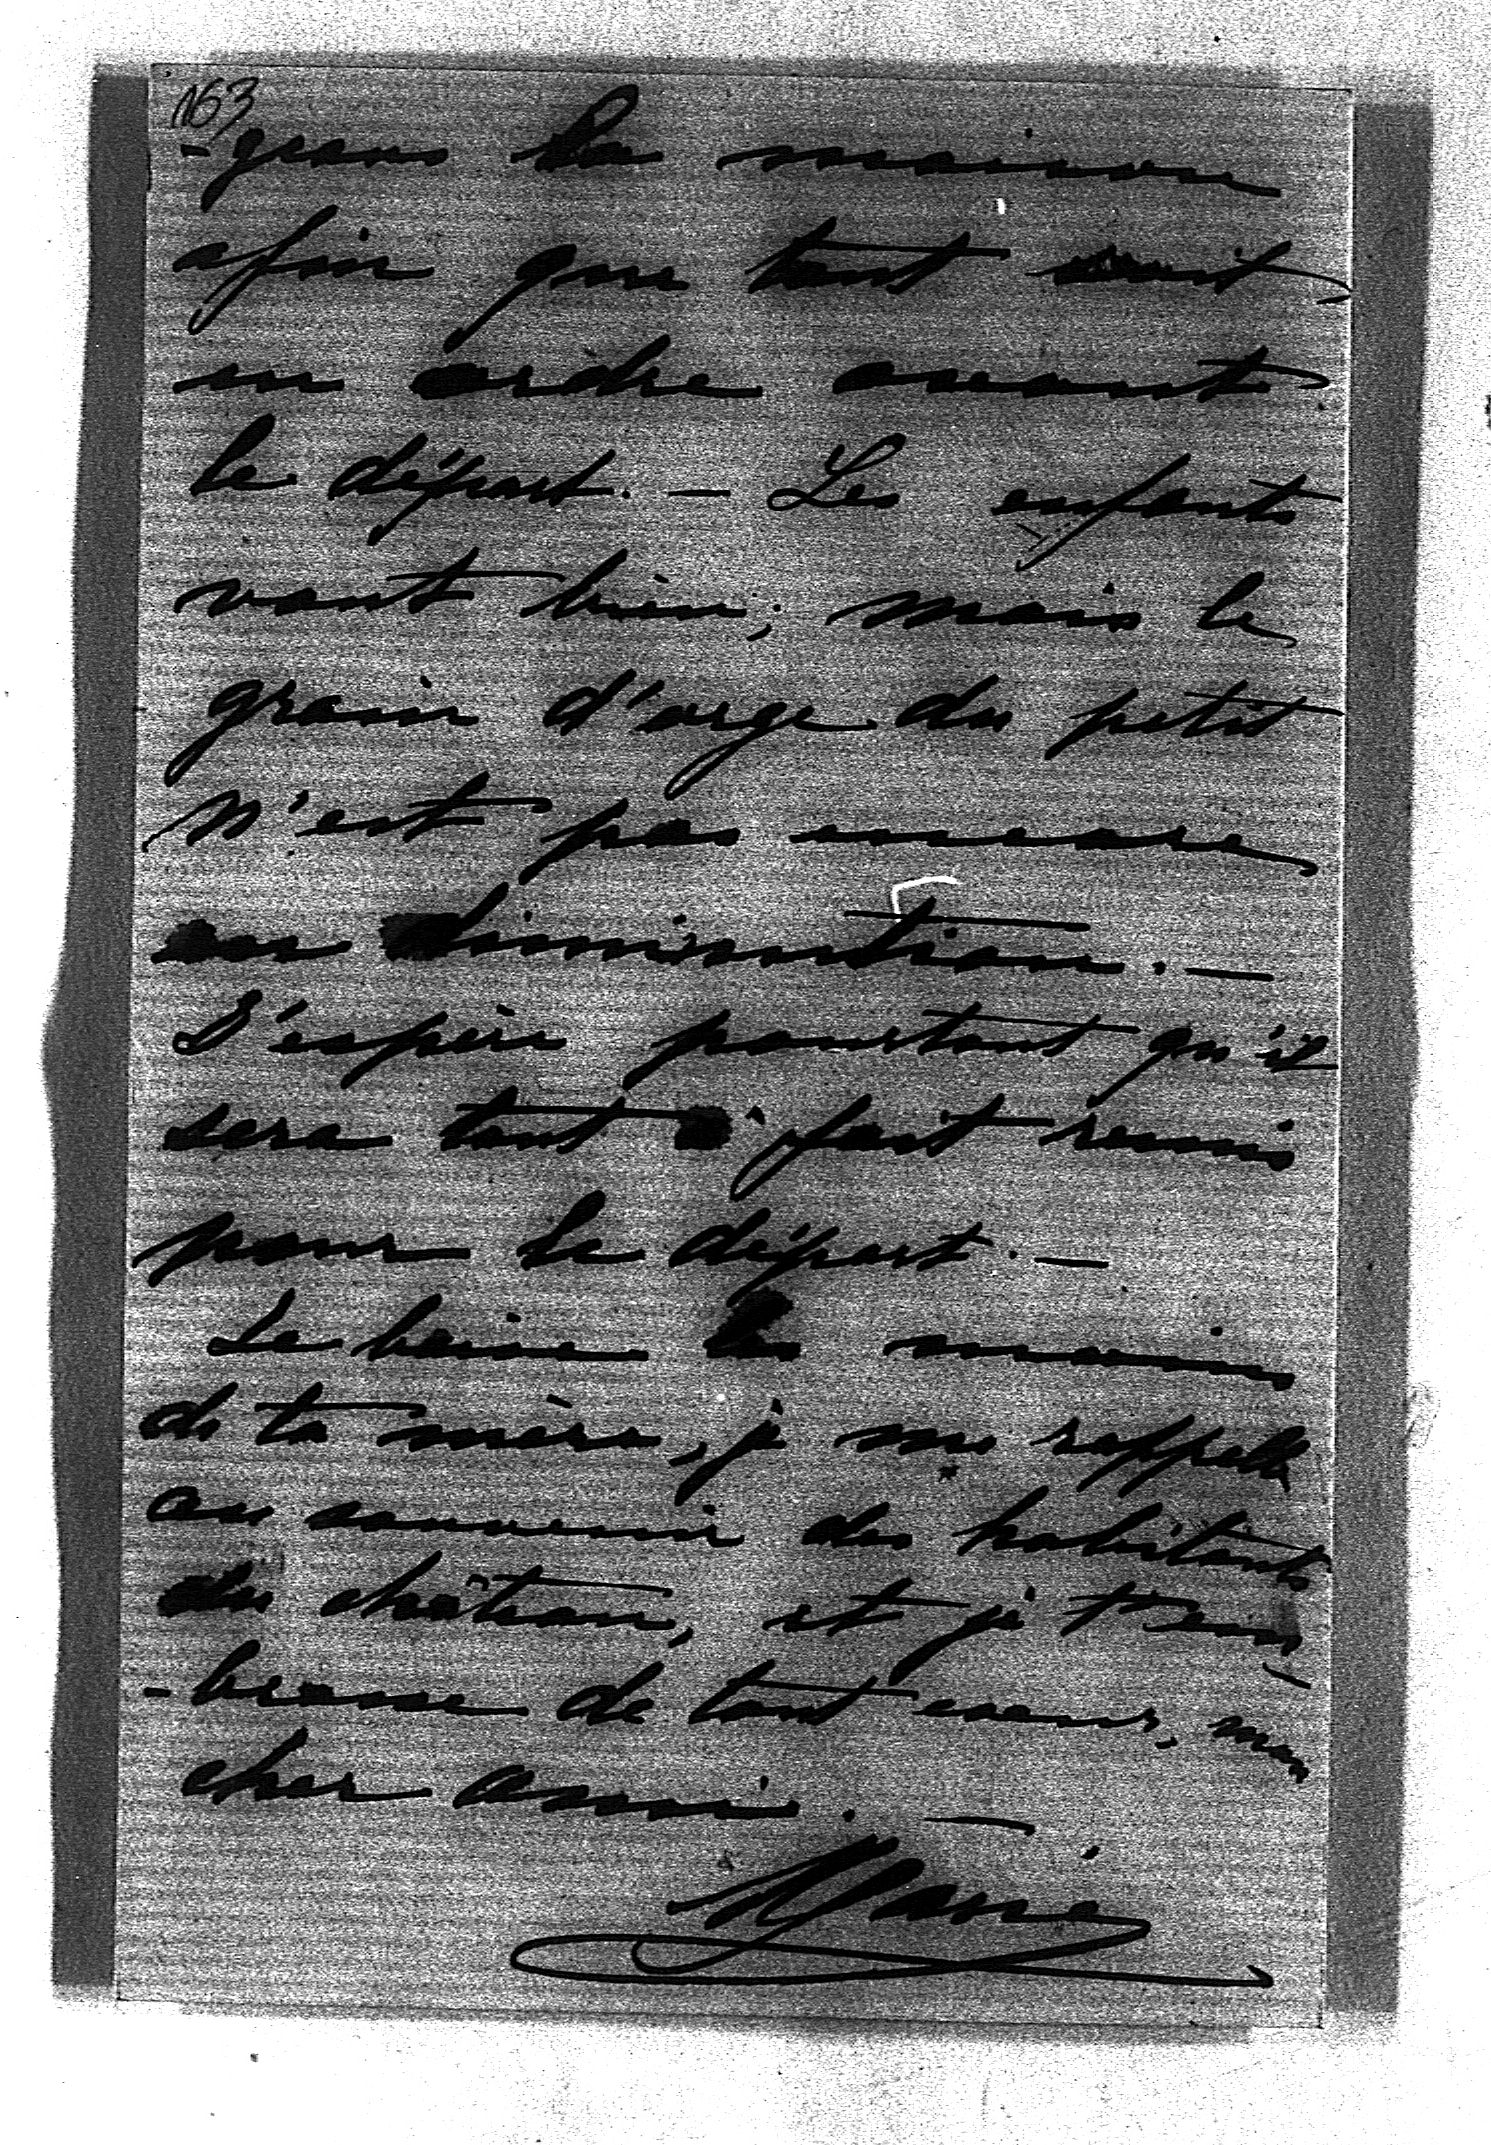 163
-geons la maison
afin que tout soit
en ordre avant
le départ. — Les enfants
vont bien; mais le
grain d'orge du petit
n'est pas encore
en diminution. —
J'espère pourtant qu'il
sera tout à fait remis
pour le départ. —
Je baise les mains
de ta mère, je me rappelle
au souvenir des habitants
du château, et je t'em-
-brasse de tout coeur, mon
cher ami. —
Marie